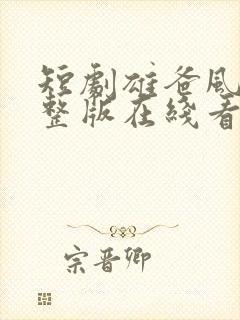 短劇雄爸風
整版在綫看
宗晋卿